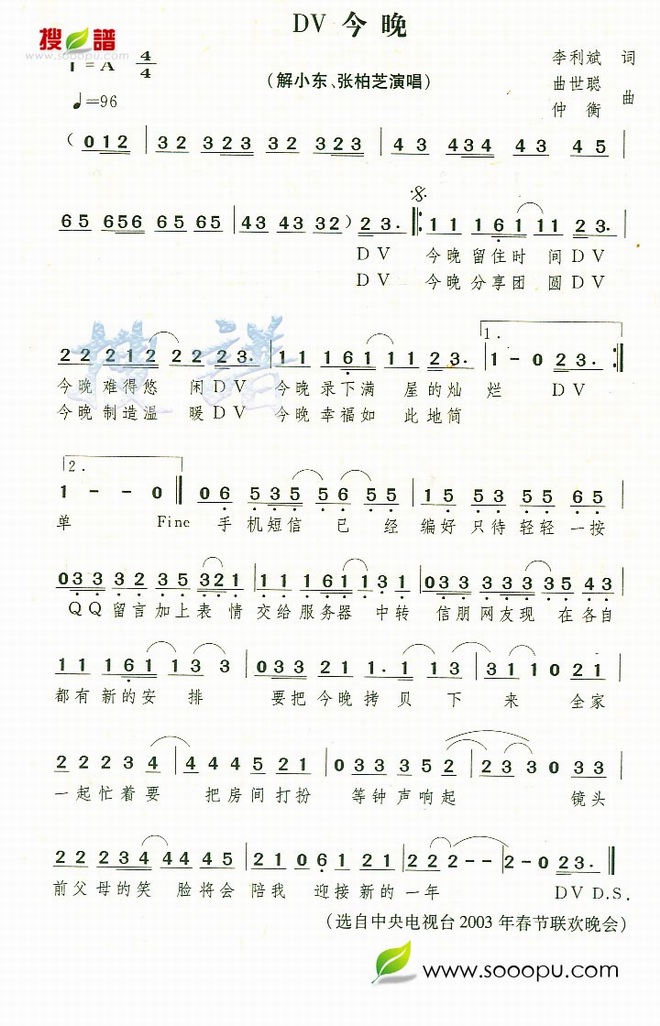 DV 今晚
搜谱
www.sooopu.com
1=A 4/4
(解小东、张柏芝演唱)
李利斌 词
曲世聪
仲衡 曲
♩=96
( 0 1 2 | 3 2 3 2 3 3 2 3 2 3 | 4 3 4 3 4 4 3 4 5 |
6 5 6 5 6 6 5 6 5 | 4 3 4 3 3 2 ) 2 3. 1 1 1 6 1 1 1 2 3. |
DV 今晚留住时间DV
DV 今晚分享团圆DV
2 2 2 2 1 2 2 2 2 3. | 1 1 1 6 1 1 1 2 3. | 1. 1 - 0 2 3. :|
今晚难得悠闲DV 今晚录下满屋的灿烂 DV
今晚制造温暖DV 今晚幸福如此地简
2.
1 - - 0 || 0 6 5 3 5 5 6 5 5 | 1 5 5 3 5 5 6 5 |
单 Fine 手机短信已经编好只待轻轻一按
0 3 3 3 2 3 5 3 2 1 | 1 1 1 6 1 1 3 1 | 0 3 3 3 3 3 3 5 4 3 |
QQ留言加上表情交给服务器中转 信朋网友现在各自
1 1 1 6 1 1 3 3 | 0 3 3 2 1 1. 1 1 3 | 3 1 1 0 2 1 |
都有新的安排 要把今晚拷贝下来 全家
2 2 2 2 3 4 | 4 4 4 5 2 1 | 0 3 3 3 5 2 2 3 3 0 3 3 |
一起忙着要 把房间打扮 等钟声响起 镜头
2 2 2 3 4 4 4 4 5 | 2 1 0 6 1 2 1 | 2 2 2 - - | 2 - 0 2 3. ||
前父母的笑脸将会陪我迎接新的一年 DV D.S.
(选自中央电视台2003年春节联欢晚会)
www.sooopu.com